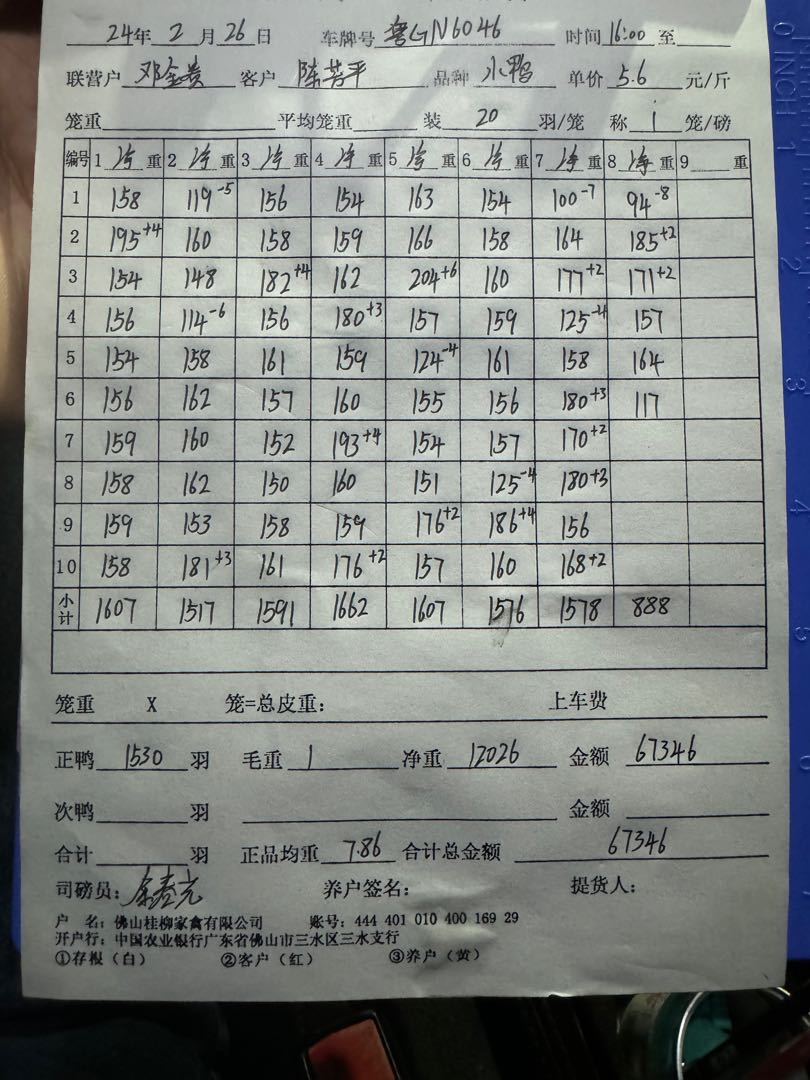 24年 2 月 26 日 车牌号 鲁GN6046 时间 16:00 至
联营户 邓金贵 客户 陈芳平 品种 水鸭 单价 5.6 元/斤
笼重 平均笼重 装 20 羽/笼 称 1 笼/磅
编号 1 净 重 2 净 重 3 净 重 4 净 重 5 净 重 6 净 重 7 净 重 8 净 重 9 重
1 158 119-5 156 154 163 154 100-7 94-8
2 195+4 160 158 159 166 158 164 185+2
3 154 148 182+4 162 204+6 160 177+2 171+2
4 156 114-6 156 180+3 157 159 125-4 157
5 154 158 161 159 124-4 161 158 164
6 156 162 157 160 155 156 180+3 117
7 159 160 152 193+4 154 157 170+2
8 158 162 150 160 151 125-4 180+3
9 159 153 158 159 176+2 186+4 156
10 158 181+3 161 176+2 157 160 168+2
小计 1607 1517 1591 1662 1607 1576 1578 888
笼重 X 笼=总皮重: 上车费
正鸭 1530 羽 毛重 1 净重 12026 金额 67346
次鸭 羽 金额
合计 羽 正品均重 7.86 合计总金额 67346
司磅员: 养户签名: 提货人:
户 名: 佛山桂柳家禽有限公司 账号: 444 401 010 400 169 29
开户行: 中国农业银行广东省佛山市三水区三水支行
①存根(白) ②客户(红) ③养户(黄)
0 INCH 1
2
3
4
5